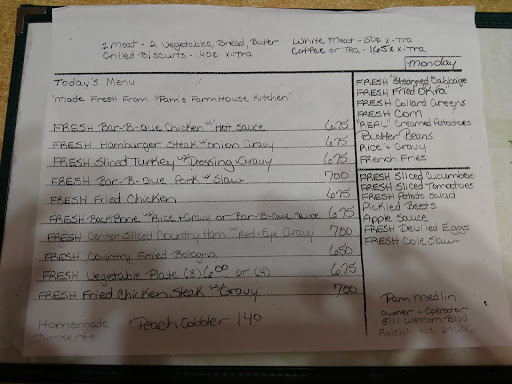 1 Meat - 2 vegetables, Bread, Butter
White Meat - 50¢ x-tra
Grilled Biscuits - 40¢ x-tra
Coffee or Tea - 165¢ x-tra
Monday
Today's Menu
"Made Fresh From "Pam's FarmHouse Kitchen"
FRESH Bar-B-Que Chicken w/ Hot Sauce 675
FRESH Hamburger Steak w/ onion Gravy 675
FRESH Sliced Turkey w/ Dressing + Gravy 675
FRESH Bar-B-Que Pork w/ Slaw 700
FRESH Fried Chicken 675
FRESH BackBone w/ Rice + Gravy or Bar-B-Que Sauce 675
FRESH Center Sliced Country Ham w/ Red-Eye Gravy 700
FRESH Country Fried Bologna 650
FRESH Vegetable Plate (3) 600 or (4) 675
FRESH Fried Chicken Steak w/ Gravy 700
Homemade Desserts
Peach Cobbler 140
FRESH Steamed Cabbage
FRESH Fried Okra
FRESH Collard Greens
FRESH Corn
"REAL" Creamed Potatoes
Butter Beans
Rice + Gravy
French Fries
FRESH Sliced Cucumbers
FRESH Sliced Tomatoes
FRESH Potato Salad
Pickled Beets
Apple Sauce
FRESH Devlied Eggs
FRESH Cole Slaw
Pam Medlin
owner + operator
5111 Western Blvd
Raleigh NC